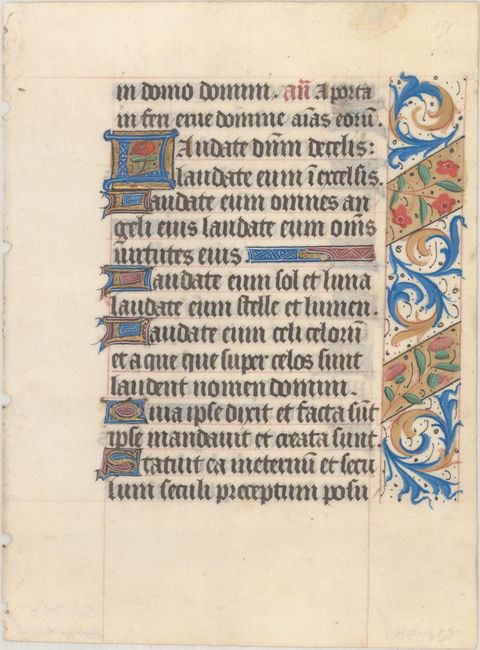 in domo domini. añ A porta
in feri erue domine aĩas eorũ.
Laudate dñm decelis:
laudate eum ĩ excelsis.
Laudate eum omnes an
geli eius laudate eum om̃s
uirtutes eius
Laudate eum sol et luna
laudate eum stelle et lumen.
Laudate eum celi celorũ
et aque que super celos sunt
laudent nomen domini.
Quia ipse dixit et facta sũt
ipse mandauit et creata sunt.
Statuit ea ineternũ et secu
lum seculi preceptum posu